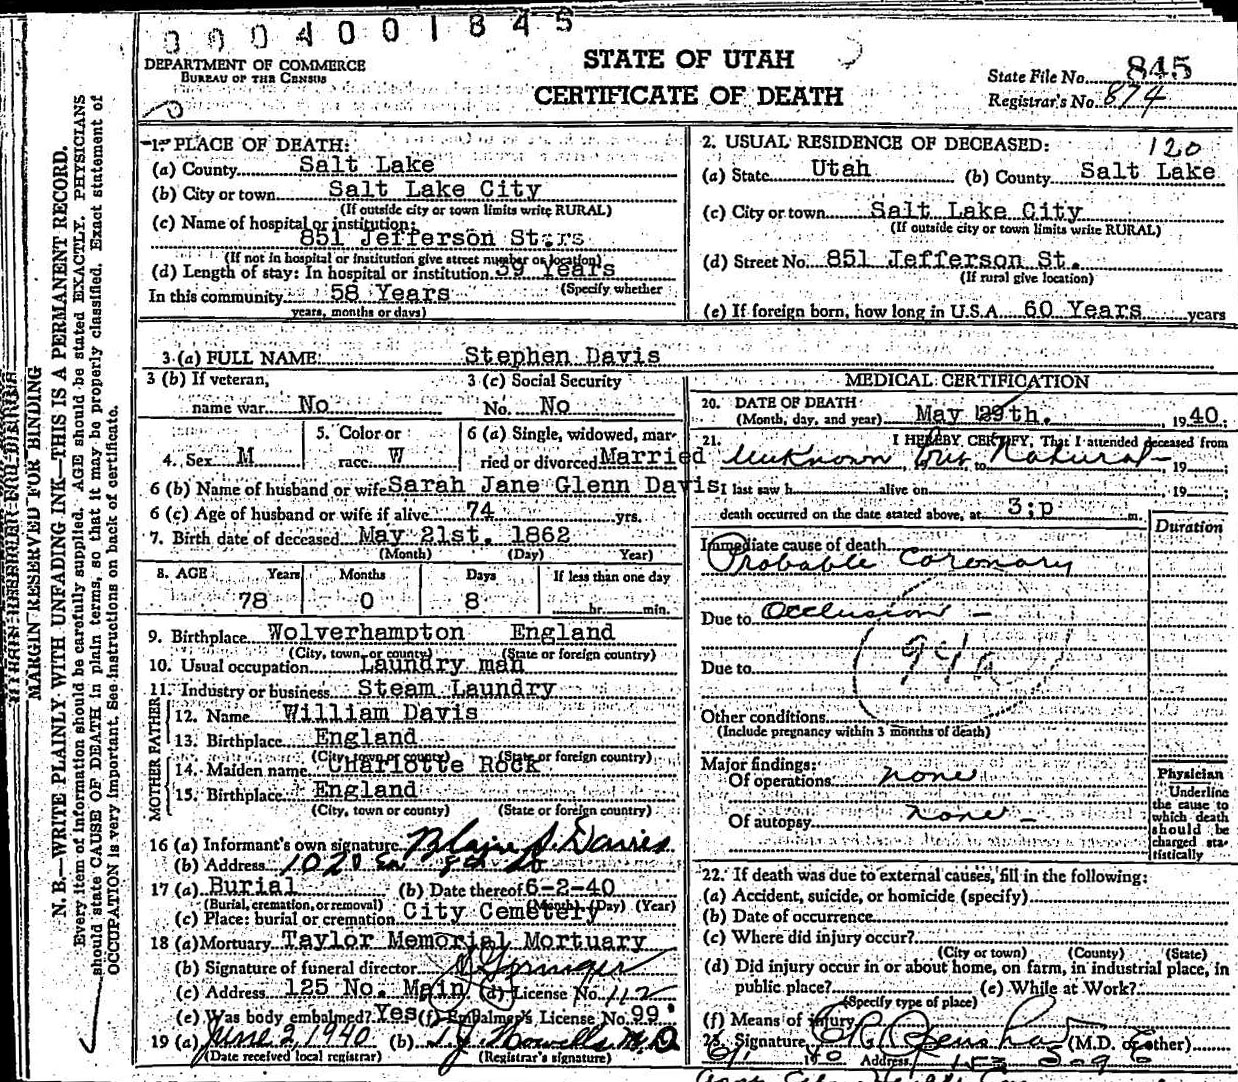 0004001845
DEPARTMENT OF COMMERCE
BUREAU OF THE CENSUS
STATE OF UTAH
CERTIFICATE OF DEATH
State File No. 845
Registrar's No. 874
MARGIN RESERVED FOR BINDING
N. B.—WRITE PLAINLY WITH UNFADING INK—THIS IS A PERMANENT RECORD.
Every item of information should be carefully supplied. AGE should be stated EXACTLY. PHYSICIANS
should state CAUSE OF DEATH in plain terms, so that it may be properly classified. Exact statement of
OCCUPATION is very important. See instructions on back of certificate.
1. PLACE OF DEATH:
(a) County Salt Lake
(b) City or town Salt Lake City
(If outside city or town limits write RURAL)
(c) Name of hospital or institution:
851 Jefferson St.
(If not in hospital or institution give street number or location)
(d) Length of stay: In hospital or institution 39 Years
(Specify whether
In this community 58 Years
years, months or days)
2. USUAL RESIDENCE OF DECEASED: 120
(a) State Utah (b) County Salt Lake
(c) City or town Salt Lake City
(If outside city or town limits write RURAL)
(d) Street No. 851 Jefferson St.
(If rural give location)
(e) If foreign born, how long in U.S.A. 60 Years years
3 (a) FULL NAME Stephen Davis
3 (b) If veteran, 3 (c) Social Security
name war No No. No
4. Sex M 5. Color or race W 6 (a) Single, widowed, married or divorced Married
6 (b) Name of husband or wife Sarah Jane Glenn Davis
6 (c) Age of husband or wife if alive 74 yrs.
7. Birth date of deceased May 21st. 1862
(Month) (Day) Year)
8. AGE Years Months Days If less than one day
78 0 8 hr. min.
9. Birthplace Wolverhampton England
(City, town, or county) (State or foreign country)
10. Usual occupation Laundry man
11. Industry or business Steam Laundry
FATHER
12. Name William Davis
13. Birthplace England
(City, town or county) (State or foreign country)
MOTHER
14. Maiden name Charlotte Rock
15. Birthplace England
(City, town or county) (State or foreign country)
16 (a) Informant's own signature Blaine S. Davies
(b) Address 1020 Ea
17 (a) Burial (b) Date thereof 6-2-40
(Burial, cremation, or removal) (Month) (Day) (Year)
(c) Place: burial or cremation City Cemetery
18 (a) Mortuary Taylor Memorial Mortuary
(b) Signature of funeral director
(c) Address 125 No. Main (d) License No. 112
(e) Was body embalmed? Yes (f) Embalmer's License No. 99
19 (a) June 2, 1940 (b) T. J. Howells M.D
(Date received local registrar) (Registrar's signature)
MEDICAL CERTIFICATION
20. DATE OF DEATH
(Month, day, and year) May 29th. , 1940.
21. I HEREBY CERTIFY, That I attended deceased from
Unknown , But to Natural , 19 ;
I last saw h alive on , 19 ;
death occurred on the date stated above, at 3;p m.
Duration
Immediate cause of death
Probable Coronary
Due to Occlusion
94a
Due to
Other conditions
(Include pregnancy within 3 months of death)
Major findings:
Of operations none
Of autopsy none
Physician
Underline
the cause to
which death
should be
charged sta-
tistically
22. If death was due to external causes, fill in the following:
(a) Accident, suicide, or homicide (specify)
(b) Date of occurrence
(c) Where did injury occur?
(City or town) (County) (State)
(d) Did injury occur in or about home, on farm, in industrial place, in
public place? (e) While at Work?
(Specify type of place)
(f) Means of injury
23. Signature (M.D. or other)
Address